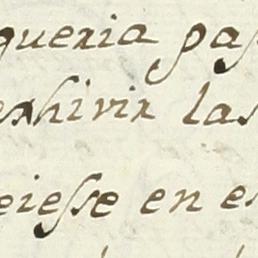 queria pas
exhivir las
eiesse en es